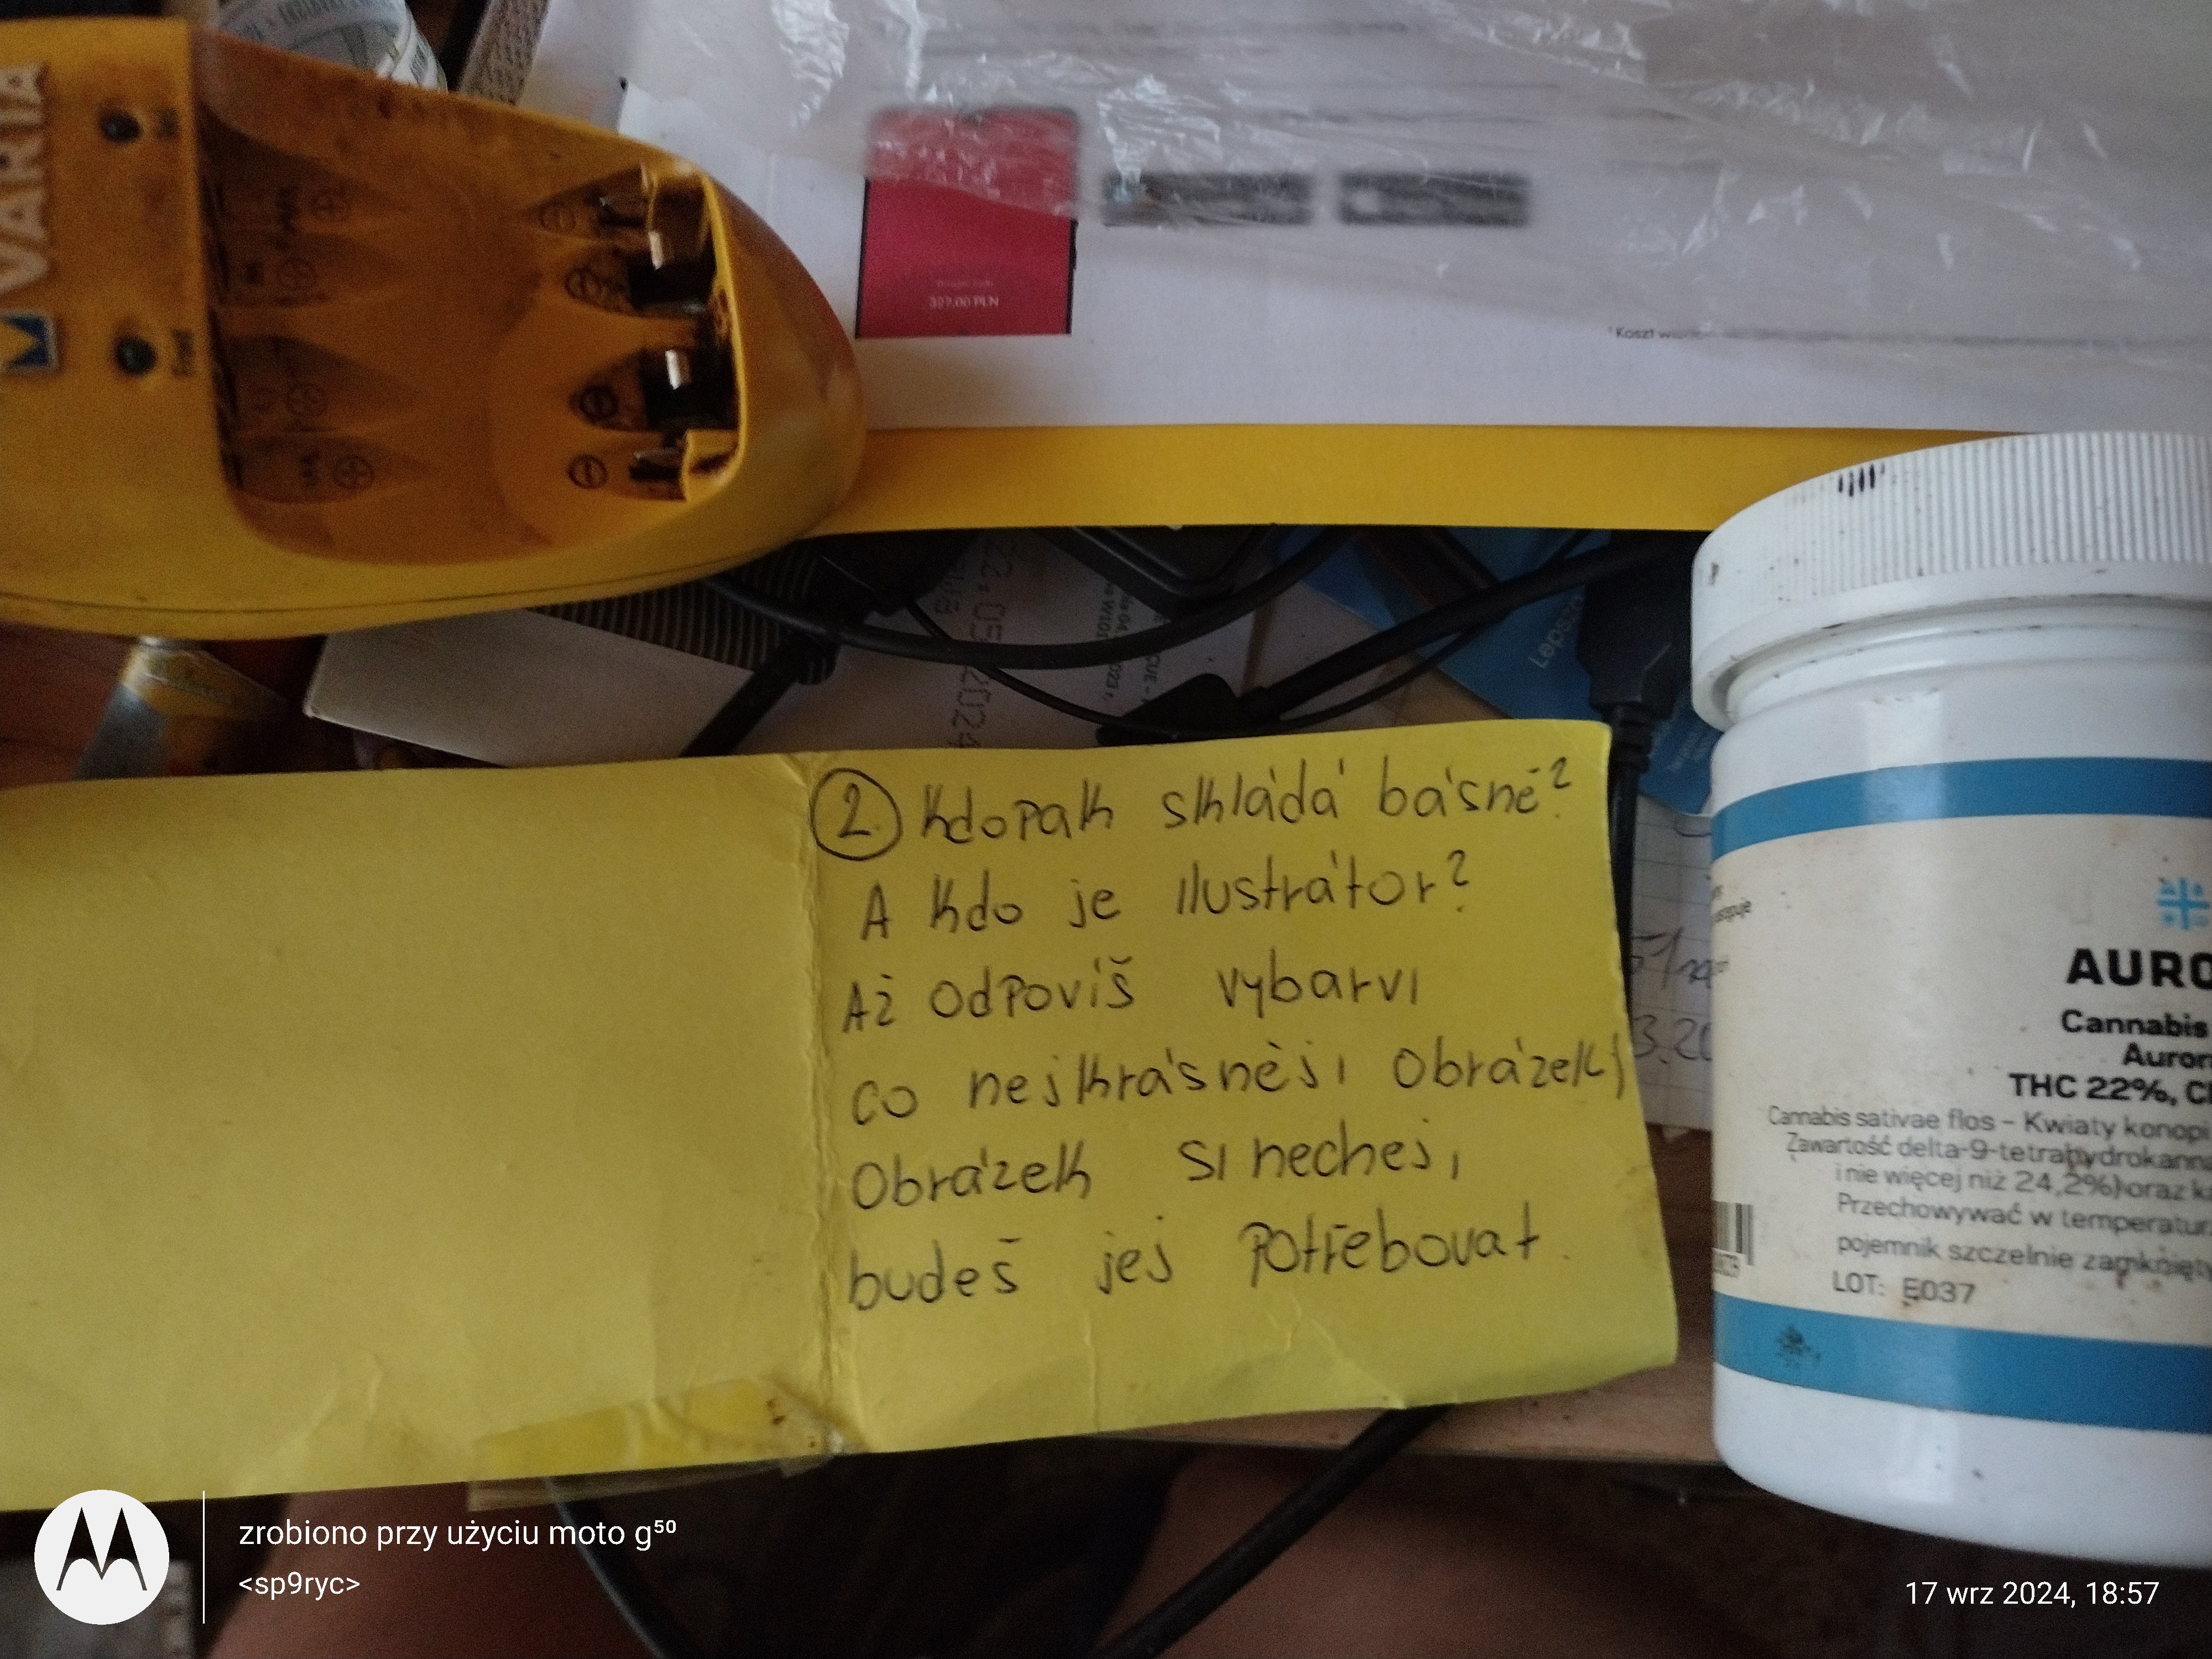 VARTA
327,00 PLN
Koszt
22:05
2024
Lepsz
② Kdopak skládá básně?
A kdo je ilustrátor?
Až odpovíš vybarvi
co nejkrásněji obrázek)
Obrázek si nechej,
budeš jej potřebovat.
AURO
Cannabis
Auror
THC 22%, C
Cannabis sativae flos – Kwiaty konopi
Zawartość delta-9-tetrahydrokanna
i nie więcej niż 24,2%) oraz k
Przechowywać w temperatur
pojemnik szczelnie zamknięty
LOT: E037
zrobiono przy użyciu moto g⁵⁰
<sp9ryc>
17 wrz 2024, 18:57